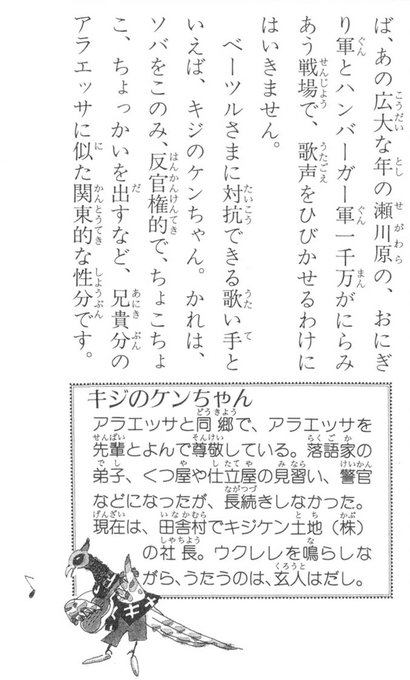 ば、あの広大な年の瀬川原の、おにぎ
り軍とハンバーガー軍一千万がにらみ
あう戦場で、歌声をひびかせるわけに
はいきません。
ベーツルさまに対抗できる歌い手と
いえば、キジのケンちゃん。かれは、
ソバをこのみ、反官権的で、ちょこちょ
こ、ちょっかいを出すなど、兄貴分の
アラエッサに似た関東的な性分です。
キジのケンちゃん
アラエッサと同郷で、アラエッサを
先輩とよんで尊敬している。落語家の
弟子、くつ屋や仕立屋の見習い、警官
などになったが、長続きしなかった。
現在は、田舎村でキジケン土地（株）
の社長。ウクレレを鳴らしな
がら、うたうのは、玄人はだし。